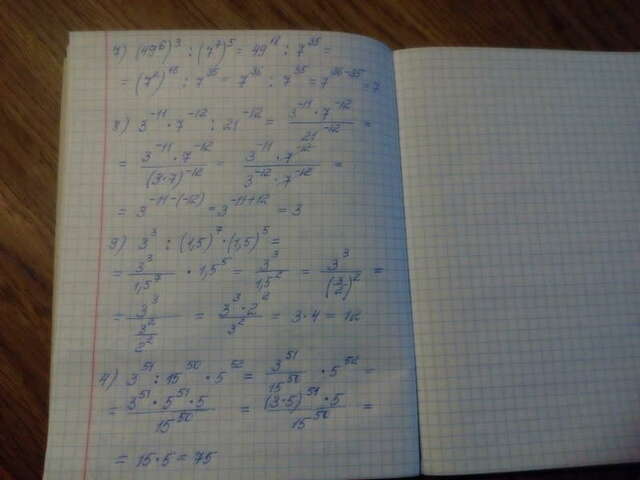 7) (49⁶)³ : (7⁷)⁵ = 49¹⁸ : 7³⁵ =
= (7²)¹⁸ : 7³⁵ = 7³⁶ : 7³⁵ = 7³⁶⁻³⁵ = 7
8) 3⁻¹¹ · 7⁻¹² : 21⁻¹² = (3⁻¹¹ · 7⁻¹²)/(21⁻¹²) =
= (3⁻¹¹ · 7⁻¹²)/((3·7)⁻¹²) = (3⁻¹¹ · 7⁻¹²)/(3⁻¹² · 7⁻¹²) =
= 3⁻¹¹⁻⁽⁻¹²⁾ = 3⁻¹¹⁺¹² = 3
9) 3³ : (1,5)⁷ · (1,5)⁵ =
= 3³/1,5⁷ · 1,5⁵ = 3³/1,5² = 3³/(3/2)² =
= 3³/(3²/2²) = (3³ · 2²)/3² = 3 · 4 = 12
4) 3⁵¹ : 15⁵⁰ · 5⁵² = 3⁵¹/15⁵⁰ · 5⁵² =
= (3⁵¹ · 5⁵¹ · 5)/15⁵⁰ = ((3·5)⁵¹ · 5)/15⁵⁰ =
= 15 · 5 = 75